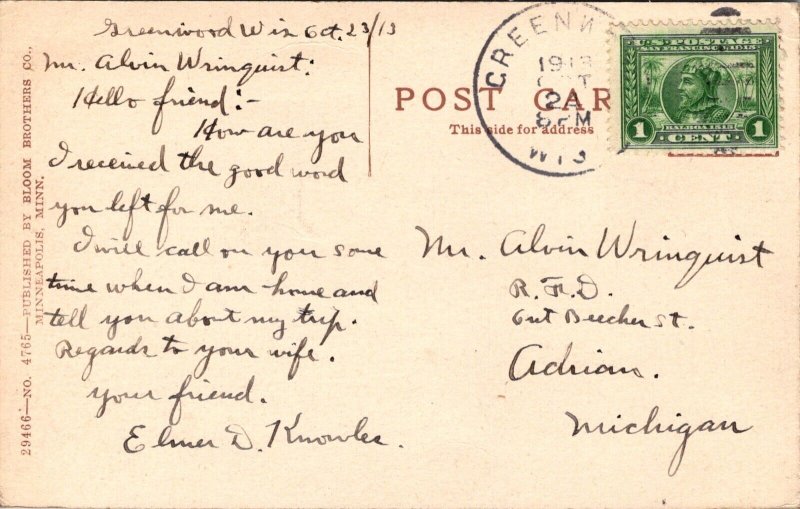 Greenwood Wis Oct. 23/13
Mr. Alvin Wringuist:
Hello friend:-
How are you
I received the good word
you left for me.
I will call on you some
time when I am home and
tell you about my trip.
Regards to your wife.
your friend.
Elmer D. Knowles.
29466—NO. 4765—PUBLISHED BY BLOOM BROTHERS CO.,
MINNEAPOLIS, MINN.
POST CAR
This side for address
GREENW
1913
OCT
2
8 PM
WIS
U.S. POSTAGE
SAN FRANCISCO 1915
BALBOA 1513
1 CENT 1
Mr. Alvin Wringuist
R. F. D.
Out Beecher St.
Adrian.
Michigan